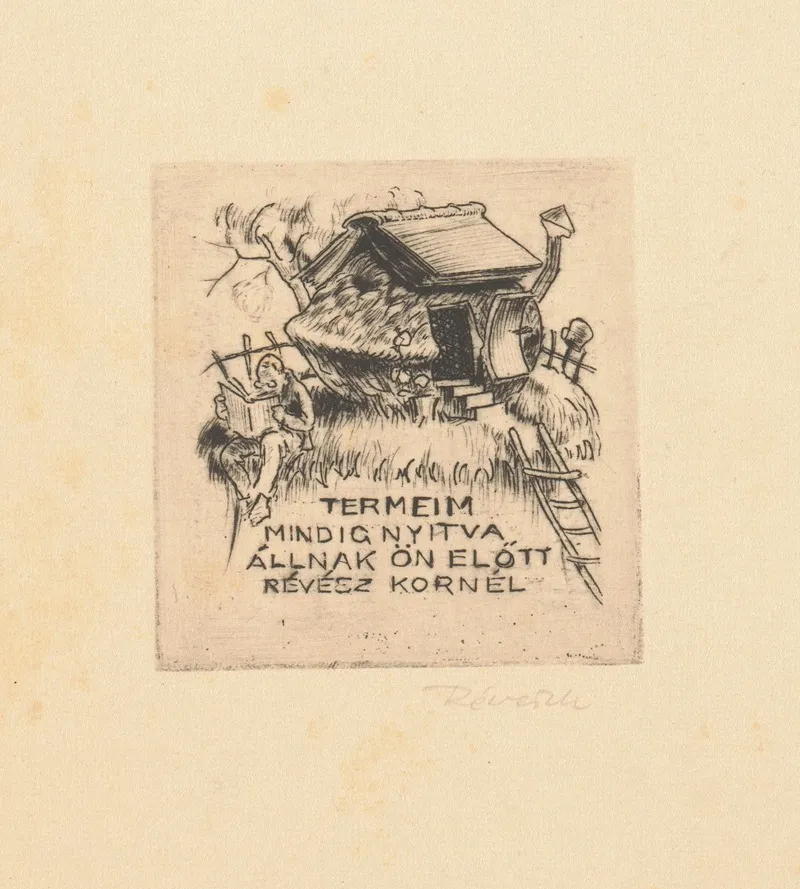 TERMEIM
MINDIG NYITVA
ÁLLNAK ÖN ELŐTT
RÉVÉSZ KORNÉL